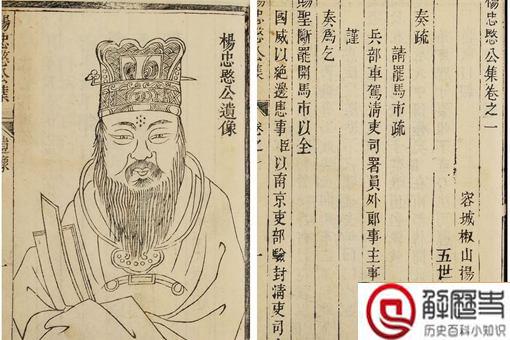 楊忠愍公遺像
楊忠愍公集
遺像
一
楊忠愍公集卷之一
容城椒山楊
五世
奏疏
請罷馬市疏
兵部車駕清吏司署員外郎事主事
謹
奏爲乞
賜聖斷罷開馬市以全
國威以絕邊患事臣以南京吏部驗封清吏司
楊忠愍公集
卷之一
一
解歷史
历史百科小知识